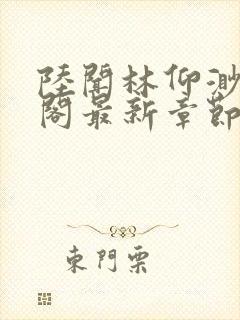 陸聞林仰渺
閣最新章節
東門栗